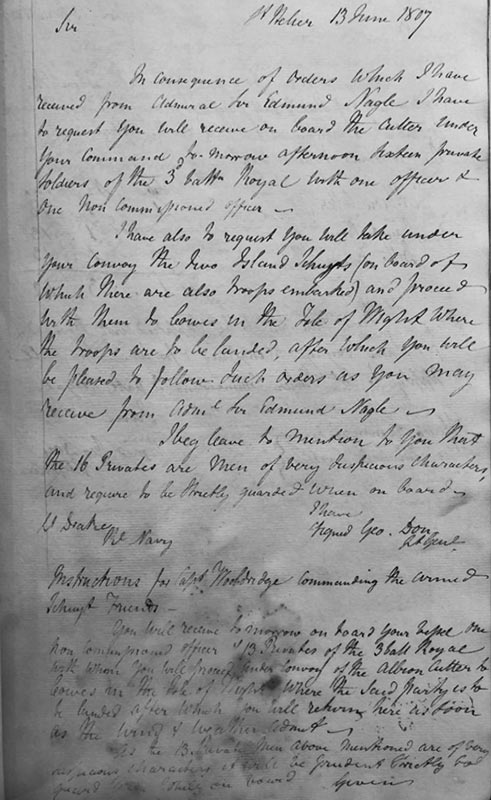 St Helier 13 June 1807
Sir
In consequence of orders which I have
received from Admiral Sir Edmund Nagle I have
to request you will receive on board the Cutter under
your command to-morrow afternoon sixteen private
soldiers of the 3 Battn Royal with one officer &
one Non Commissioned officer —
I have also to request you will take under
your convoy the two Island Schuyts (on board of
which there are also troops embarked) and proceed
with them to Cowes in the Isle of Wight where
the troops are to be landed, after which you will
be pleased to follow such orders as you may
receive from Adml Sir Edmund Nagle —
I beg leave to mention to you that
the 16 Privates are men of very suspicious characters,
and require to be strictly guarded when on board —
I have
Lt Drake Signed Geo. Don
Rl Navy Lt Genl
Instructions for Capt Wooldridge commanding the armed
Schuyt Friends —
You will receive to morrow on board your vessel one
Non Commissioned officer & 13 Privates of the 3 Batt Royal
with whom you will proceed under convoy of the Albion Cutter to
Cowes in the Isle of Wight where the said Party is to
be landed after which you will return here as soon
as the wind & weather admit —
As the 13 Private men above mentioned are of very
suspicious characters it will be prudent strictly to
guard them while on board